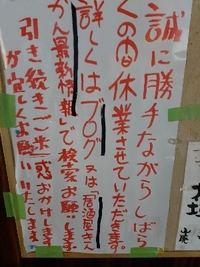 誠に勝手ながらしばら
くの間休業させていただきます
詳しくはブログ又は「居酒屋さん
かん最新情報」で検索お願いします
引き続きご迷惑おかけします
が宜しくお願いいたします